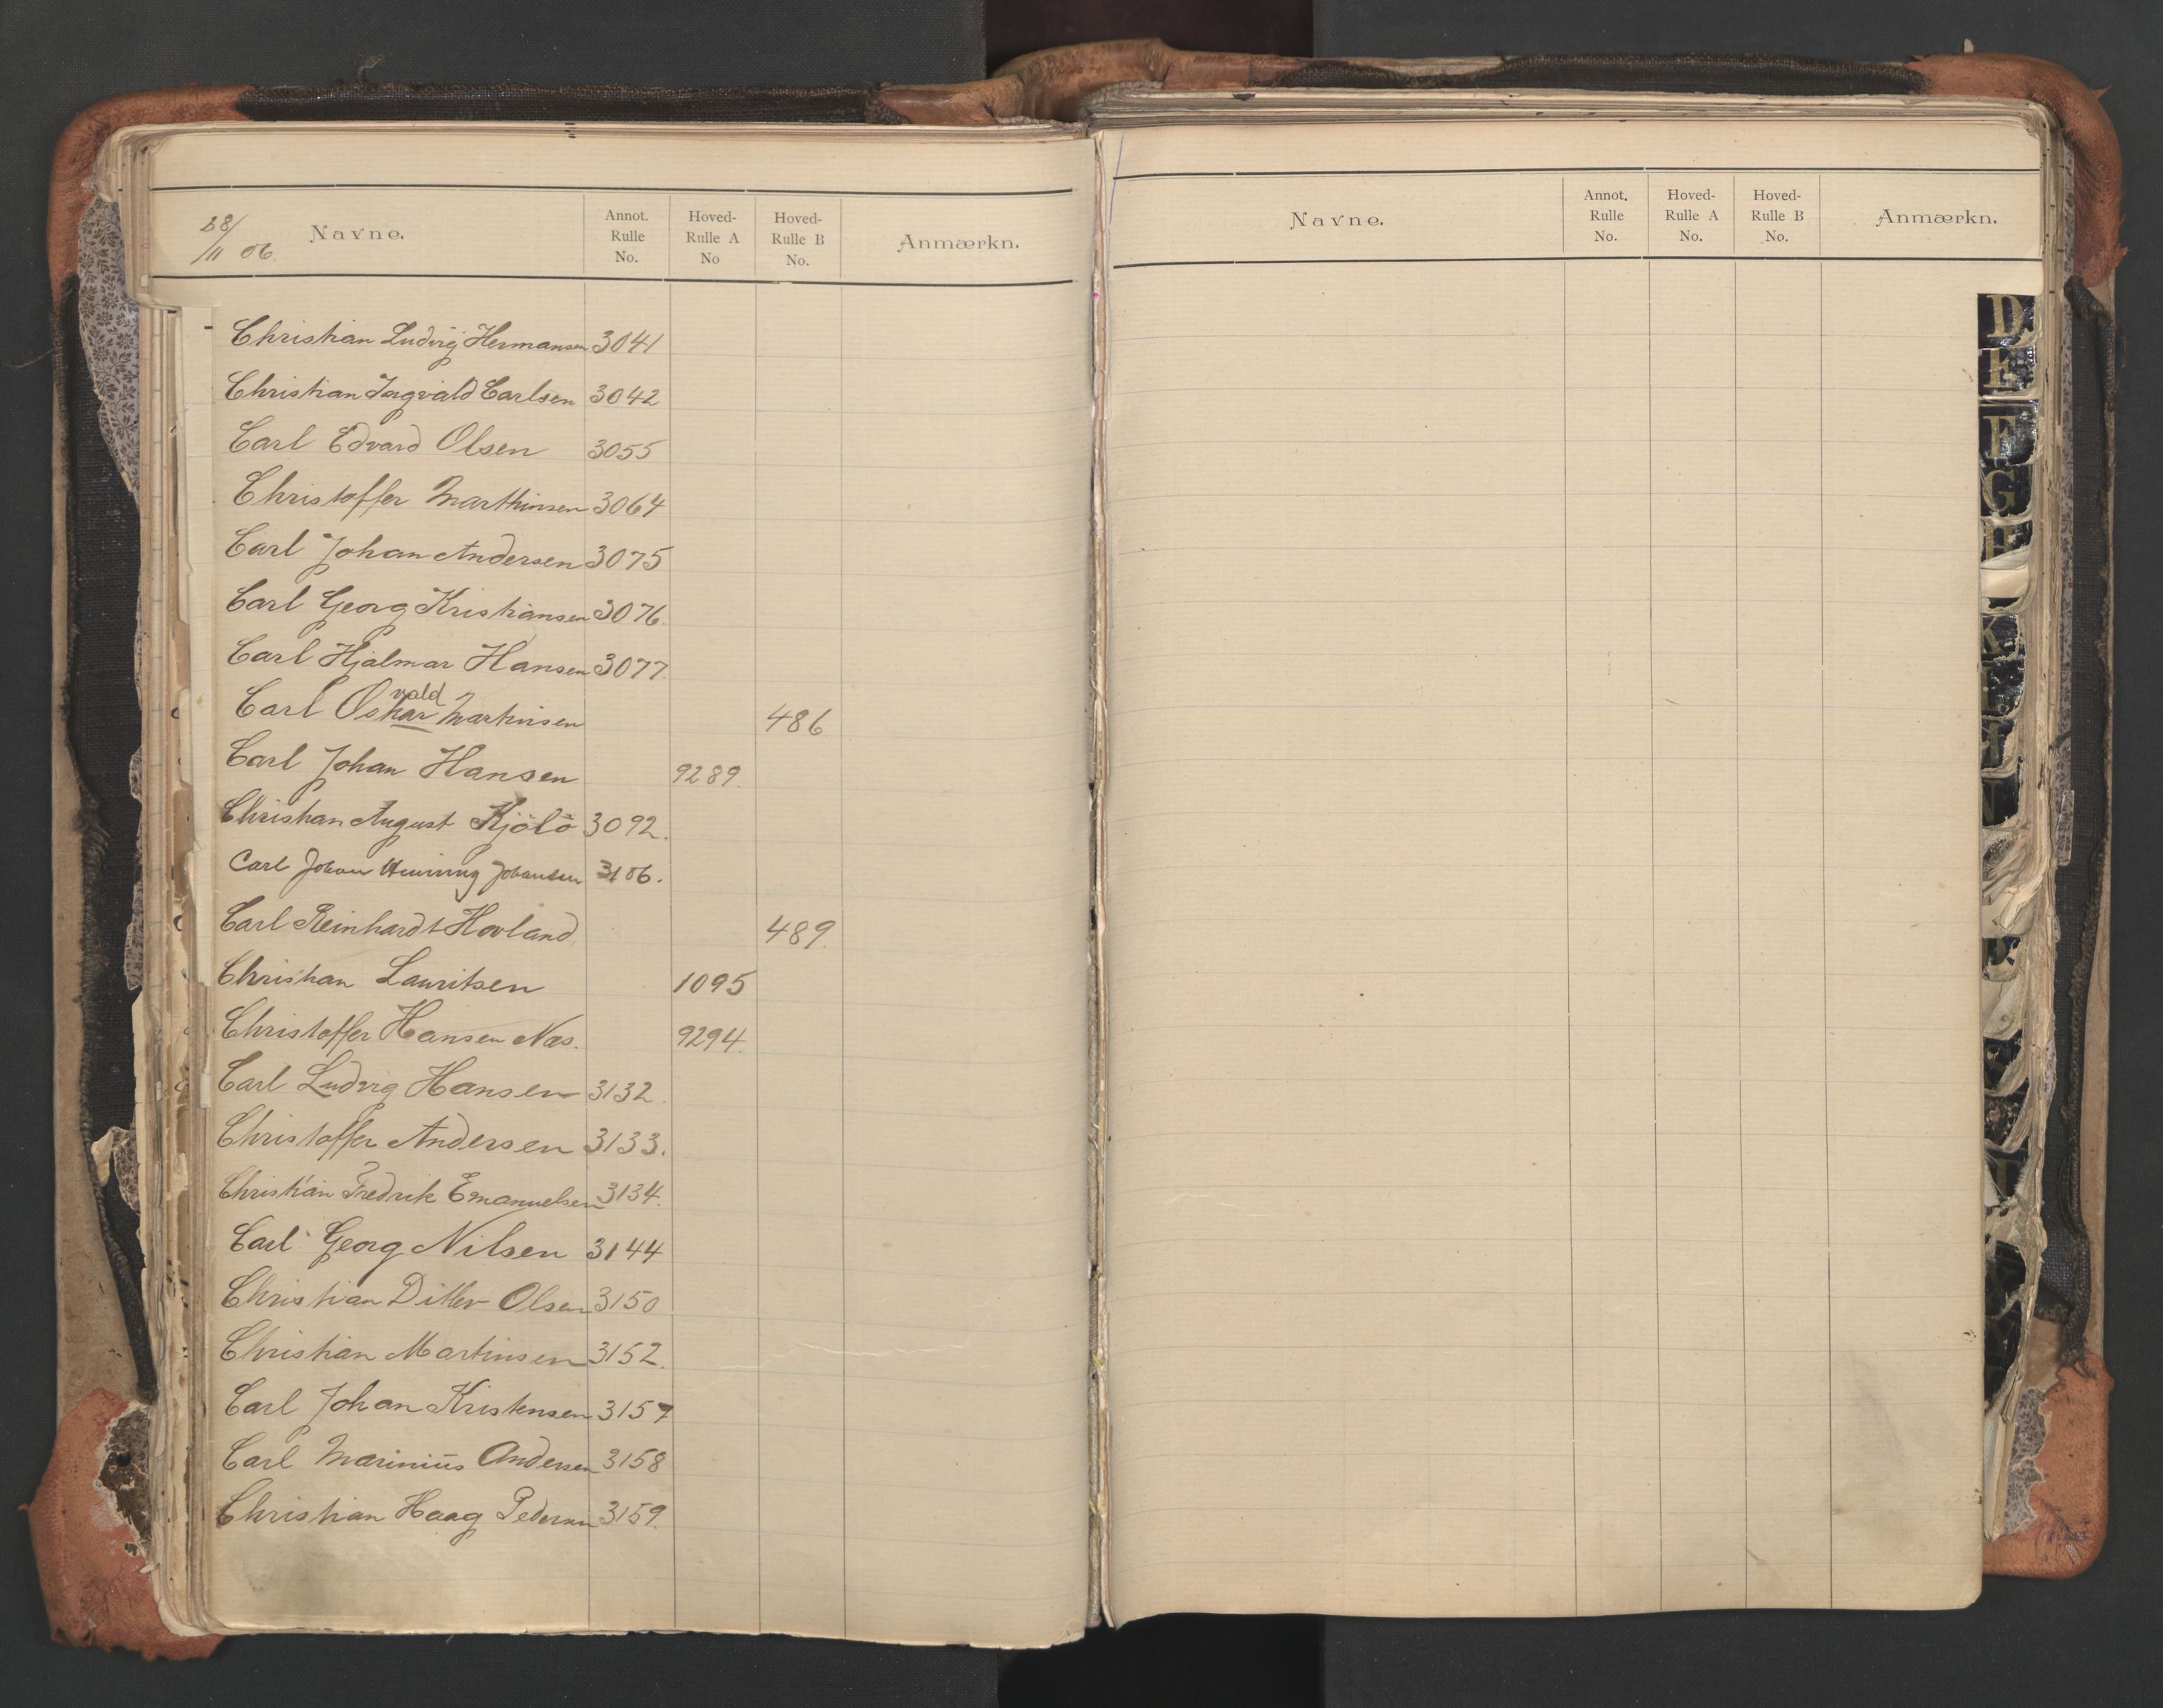 28/11 06
Navne. Annot. Rulle No. Hoved-Rulle A No Hoved-Rulle B No. Anmærkn.
Christian Ludvig Hermansen 3041
Christian Ingvald Carlsen 3042
Carl Edvard Olsen 3055
Christoffer Marthinsen 3064
Carl Johan Andersen 3075
Carl Georg Kristiansen 3076.
Carl Hjalmar Hansen 3077.
vald
Carl Oskar Martinsen 486
Carl Johan Hansen 9289.
Christian August Kjölö 3092.
Carl Johan Henning Johansen 3106.
Carl Reinhardt Hovland. 489.
Christian Lauritsen 1095
Christoffer Hansen Næs. 9294.
Carl Ludvig Hansen 3132.
Christoffer Andersen 3133.
Christian Fredrik Emanuelsen 3134.
Carl Georg Nilsen 3144
Christian Ditlev Olsen 3150
Christian Martinsen 3152.
Carl Johan Kristensen 3157
Carl Marinius Andersen 3158
Christian Haag Pedersen 3159.
Navne. Annot. Rulle No. Hoved-Rulle A No. Hoved-Rulle B No. Anmærkn.
D
E
F
G
H
K
N